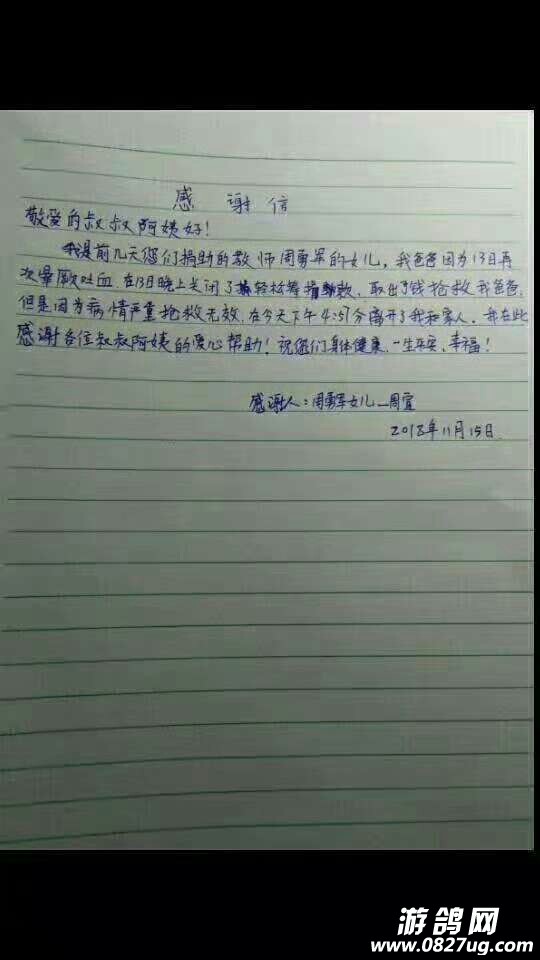 感谢信
敬爱的叔叔阿姨好!
我是前几天您们捐助的教师周勇军的女儿,我爸爸因为13日再
次晕厥吐血,在13日晚上关闭了轻松筹捐款,取出了钱抢救我爸爸,
但是因为病情严重抢救无效,在今天下午4:57分离开了我和家人,我在此
感谢各位叔叔阿姨的爱心帮助!祝您们身体健康、一生平安、幸福!
感谢人:周勇军女儿—周宣
2018年11月15日
游鸽网
www.0827ug.com